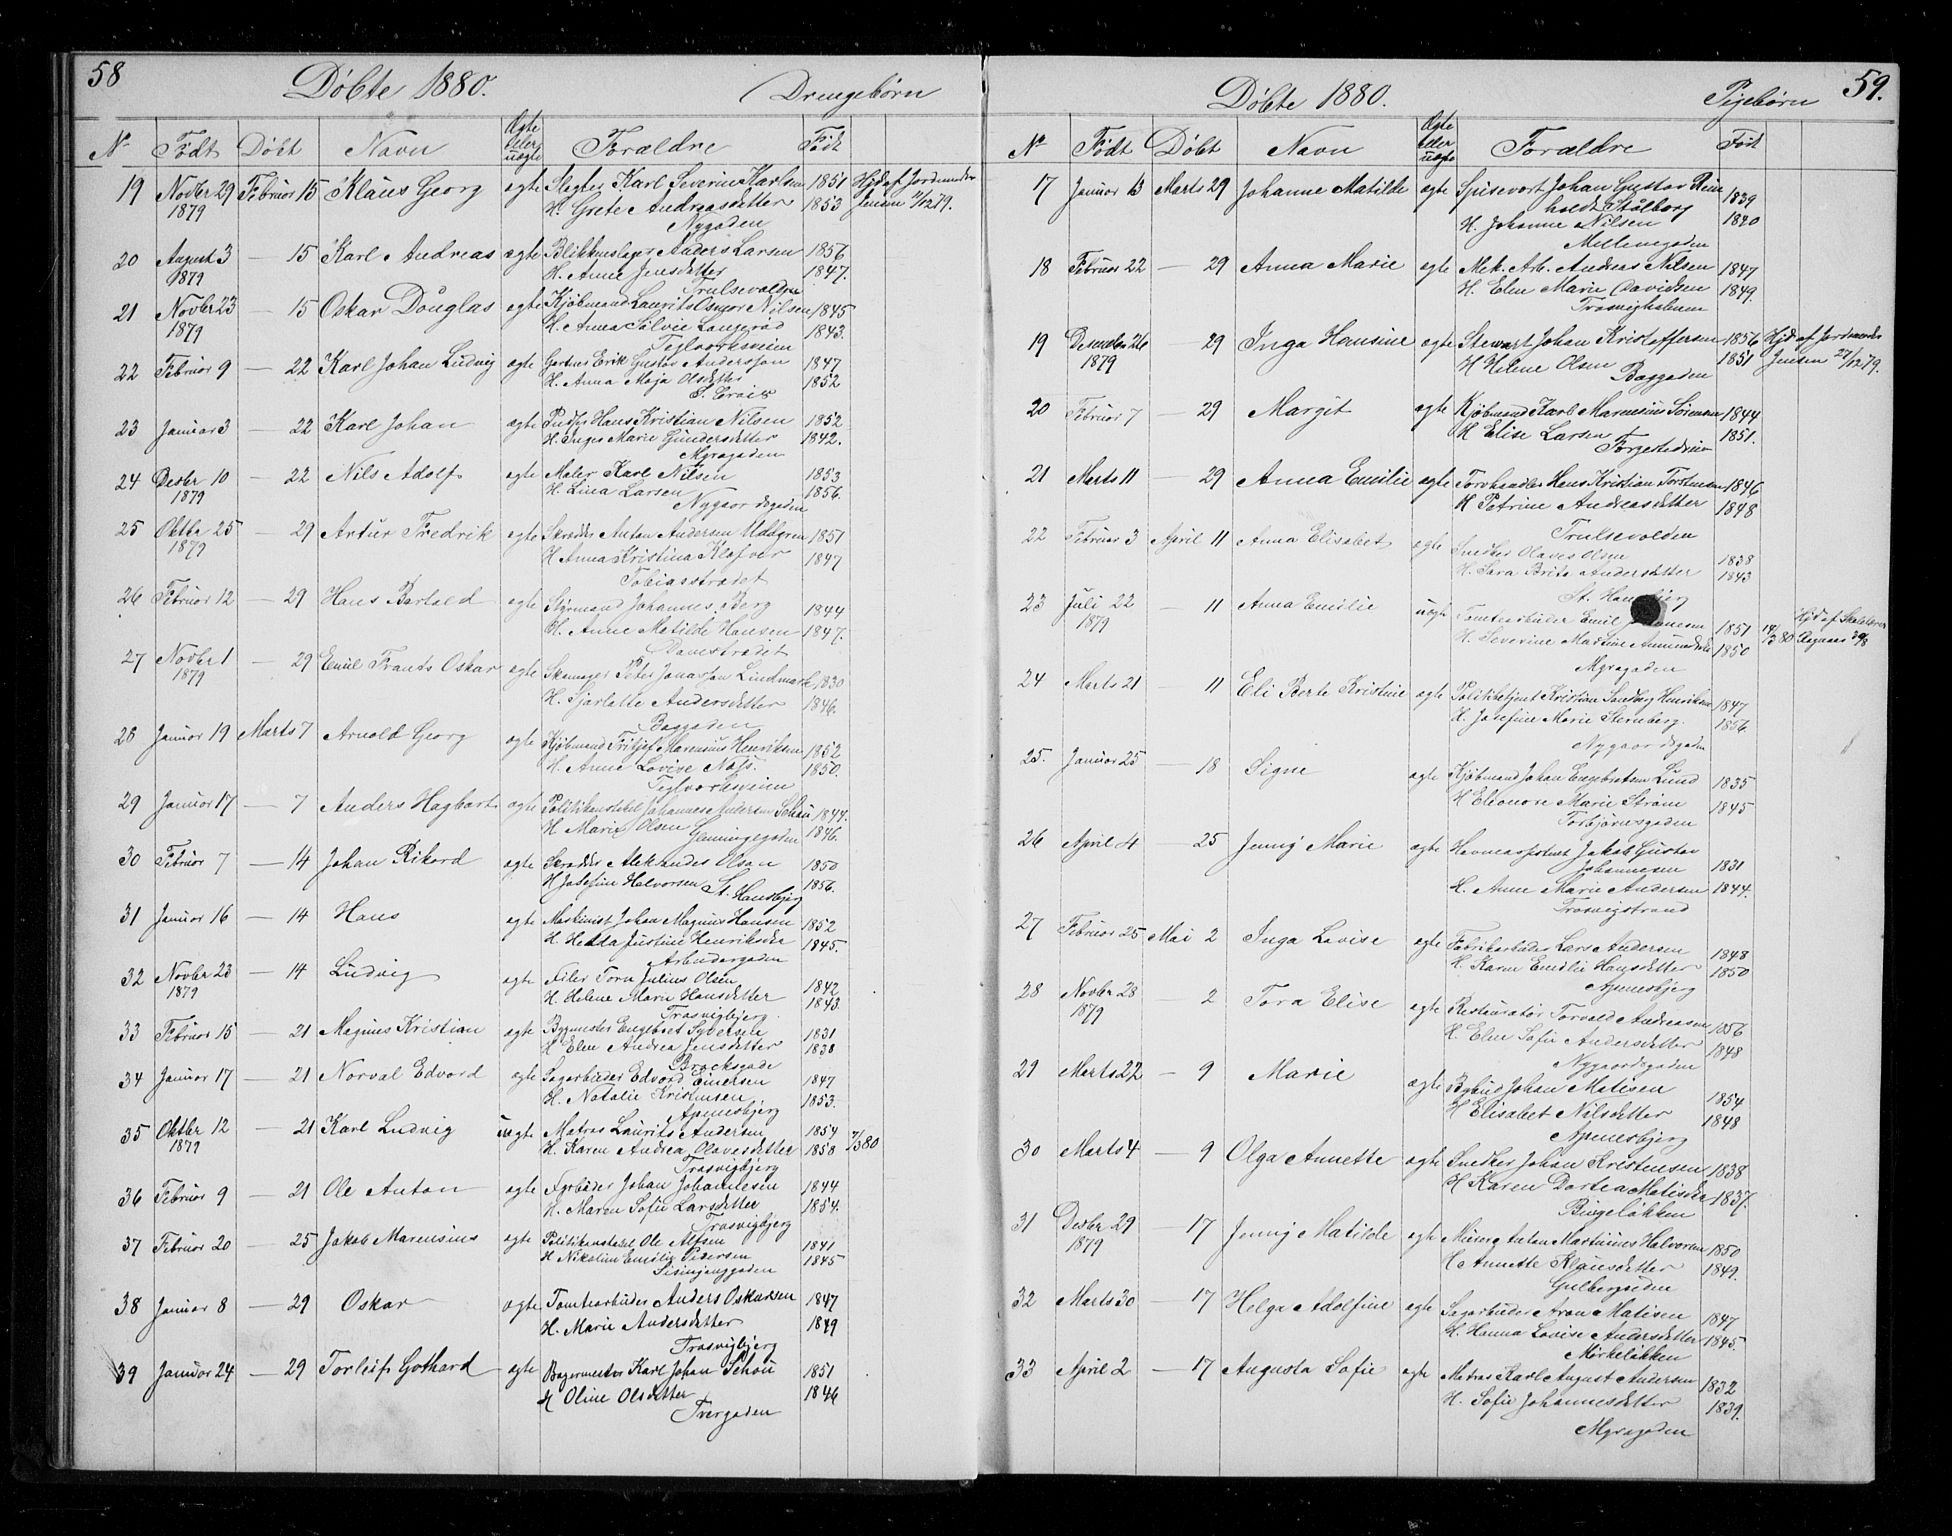 58
Döbte 1880.
Drengebörn
No Födt Döbt Navn Ægte eller uægte Forældre Födt
19 Novbr 29 Februar 15 Klaus Georg ægte Slagter Karl Severin Karlsen 1851 Hjd af Jordmoder
1879 H. Grete Andreasdetter 1853 Jensen /1279.
Nygaden
20 August 3 — 15 Karl Andreas ægte Blikkenslager Anders Larsen 1856
1879 H. Anne Jensdetter 1847.
Trulsevolden
21 Novbr 23 — 15 Oskar Douglas ægte Kjöbmand Laurits Nilsen 1845
1879 H. Anna Silvie Langeröd 1843.
Teglverksveien
22 Februar 9 — 22 Karl Johan Ludvig ægte Gartner Erik Gustav Andersson 1847
H. Anna Maja Olsdetter 1852
S. Croix
23 Januar 3 — 22 Karl Johan ægte Hans Kristian Nilsen 1852
H. Inger Marie Gundersdetter 1842.
Myragaden
24 Desbr 10 — 22 Nils Adolf ægte Maler Karl Nilsen 1853
1879 H. Lina Larsen 1856.
Nygaardsgaden
25 Oktbr 25 — 29 Artur Fredrik ægte Skrædder Anton Andersen Uddgren 1851
1879 H Anna Kristina Klafver 1847
Tobiasstrædet
26 Februar 12 — 29 Hans Bertold ægte Styrmand Johannes Berg 1844
H. Anne Matilde Hansen 1847.
Damstrædet
27 Novbr 1 — 29 Emil Frants Oskar ægte Skomager Peter Jonasson Lindmark 1830
1879 H. Sjarlotte Andersdetter 1846.
Baggaden
28 Januar 19 Marts 7 Arnold Georg ægte Kjöbmand Fritjof Marensius Henriksen 1852
H. Anne Lovise Næss. 1850.
Teglverksveien
29 Januar 17 — 7 Anders Hagbart ægte Politikonstabel Johannes Andersen Schou 1844.
H Marie Olsen 1846.
Gluningegaden
30 Februar 7 — 14 Johan Rikard ægte Skrædder Aleksander Olsen 1850
H Josefine Halvorsen 1856.
St. Hansbjerg
31 Januar 16 — 14 Hans ægte Maskinist Johan Magnus Hansen 1852
H. Hedda Justine Henriksdetter 1845.
Arbeidergaden
32 Novbr 23 — 14 Ludvig ægte Filer Torn Julius Olsen 1842
1879 H. Helene Marie Hansdetter 1843.
Trosvigbjerg
33 Februar 15 — 21 Magnus Kristian ægte Bygmester Engebret Syversen 1831
H Elen Andrea Jensdetter 1838
Brochsgade
34 Januar 17 — 21 Norval Edvard ægte Sagarbeider Edvard Einersen 1847
H. Natalie Kristensen 1853.
Apenesbjerg
35 Oktbr 12 — 21 Karl Ludvig uægte Matros Laurits Andersen 1854 7/380
1879 H. Karen Andrea Olavesdetter 1850
Trosvigbjerg
36 Februar 9 — 21 Ole Anton ægte Fyrböder Johan Johannesen 1844
H. Maren Sofie Larsdetter 1854.
Trosvigbjerg
37 Februar 20 — 25 Jakob Marensius ægte Politikonstabel Ole Alfsen 1841
H Nikoline Emilie Pedersen 1845
38 Januar 8 — 29 Oskar ægte Tomtearbeider Anders Oskarsen 1847
H. Marie Andersdetter 1849
Trosvigbjerg
39 Januar 24 — 29 Torleif Gothard ægte Bagermester Karl Johan Schou 1851
H Oline Olsdetter 1846
Tvergaden
59.
Döbte 1880.
Pigebörn
No Födt Döbt Navn Ægte eller uægte Forældre Föd
17 Januar 13 Marts 29 Johanne Matilde ægte Spisevært Johan Gustav Rein 1839
holdt Stålberg
H. Johanne Nilsen 1840
Mellemgaden
18 Februar 22 — 29 Anna Marie ægte Mek. Arb. Anders Nilsen 1847
H. Elen Marie Davidsen 1849.
Trosvigholmen
19 Desember 26 — 29 Inga Hansine ægte Stewart Johan Kristoffersen 1856 Hjd af Jordmoder
1879 H Helene Olsen 1851 Jensen 27/1279.
Baggaden
20 Februar 7 — 29 Margit ægte Kjöbmand Karl Marensius Sörensen 1844
H Elise Larsen 1851.
21 Marts 11 — 29 Anna Emilie ægte Torvhandler Hans Kristian Torstensen 1846
H Petrine Andreasdetter 1848
Trulsevolden
22 Februar 3 April 11 Anna Elisabet ægte Snedker Olaves Olsen 1838
H. Sara Brita Andersdetter 1843
St. Hansbjerg
23 Juli 22 — 11 Anna Emilie uægte Tomtearbeider Emil 1851 14/3 80 Hjd af Skolelærer
1879 H. Severine Martine 1850
Myragaden
24 Marts 21 — 11 Eli Berte Kristine ægte Politibetjent Kristian Sandberg Henriksen 1847
H. Josefine Marie Sternberg. 1856.
Nygaardsgaden
25. Januar 25 — 18 Signe ægte Kjöbmand Johan Engebretsen Lund 1835
H Eleonore Marie Ström 1845
Torbjörnsgaden
26 April 4 — 25 Jenny Marie ægte Havneassistent Jakob Gustav
Johannesen 1831
H. Anne Marie Andersen 1844.
Trosvigstrand
27 Februar 25 Mai 2 Inga Lovise ægte Fabrikarbeider Lars Andersen 1848
H. Karen Emilie Hansdetter 1850
Apenesbjerg
28 Novbr 28 — 2 Tora Elise ægte Restauratör Torvald Andreasen 1856
1879 H. Elen Sofie Andersdetter 1848
Nygaardsgaden
29 Marts 22 — 9 Marie ægte Bybud Johan Matisen 1854
H Elisabet Nilsdetter 1848
Apenesbjerg
30 Marts 4 — 9 Olga Annette ægte Snedker Johan Kristensen 1838
H Karen Dortea Matisdetter 1837.
Bingelökken
31 Desbr 29 — 17 Jenny Matilde ægte Murer Anton Martinius Halvorsen 1850
1879 H Annette Klausdetter 1849.
Gulbergsiden
32 Marts 30 — 17 Helga Adolfine ægte Sagarbeider Aron Matisen 1847
H. Hanna Lovise Andersdetter 1845.
Mörkelökken
33 April 2 — 17 Augusta Sofie ægte Matros Karl August Andersen 1832
H. Sofie Johannesdetter 1839.
Myragaden